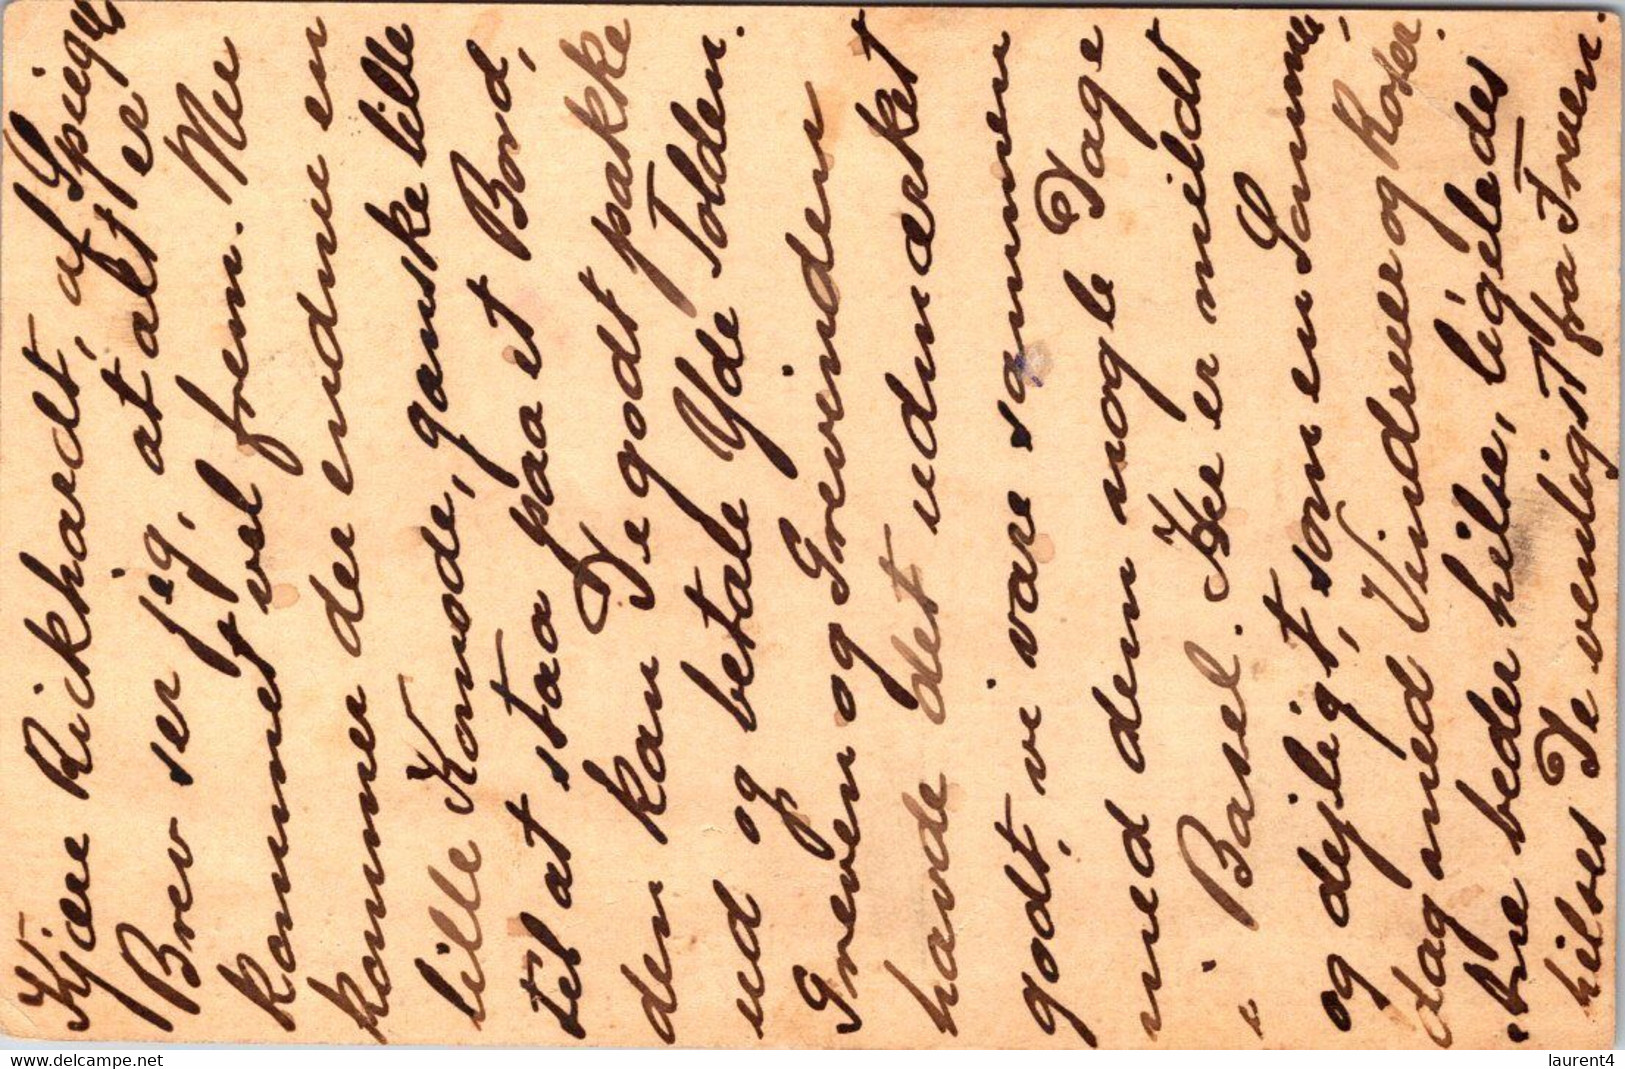 Kjære Rickhardt, af Spiegels
Brev ser jeg, at alt er
kommet vel frem. Men
kommer der endnu en
lille Komode, ganske lille
til at staa paa et Bord,
den kan De godt pakke
ud og betale Yde Tolden.
Greven og Grevinden
havde det udmærket
godt, vi vare sammen
med dem nogle Dage
i Basel. Her er mildt
og dejligt, som en Sommer,
dag med Vindruer og Roser.
Arne beder hilse, ligeledes
hilses De venligst fra Fruen.
laurent4